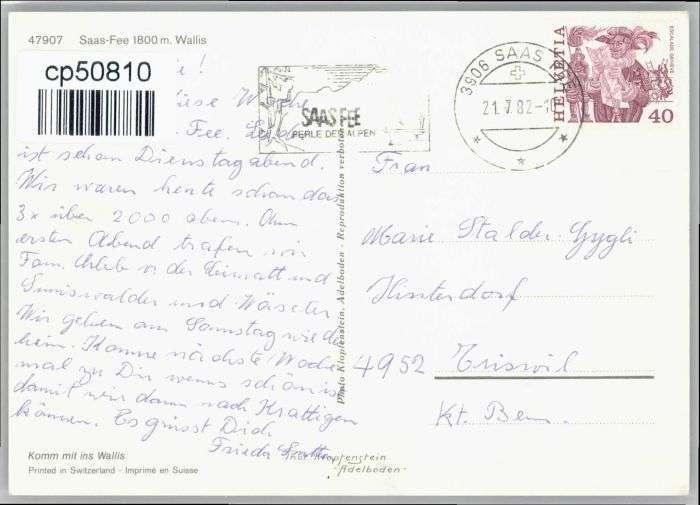 47907 Saas-Fee 1800 m. Wallis
cp50810
i!
diese Woche
Fee.
ist schon Dienstagabend.
Wir waren heute schon das
3x über 2000 oben. Am
ersten Abend trafen wir
Fam. v. der und
und
Wir gehen am Samstag wieder
heim. Komme nächste Woche
mal zu Dir wenns schön ist
damit wir dann nach Krattigen
können. Es grüsst Dich
Frieda
Komm mit ins Wallis
Printed in Switzerland - Imprimé en Suisse
SAAS FEE
PERLE DER ALPEN
3906 SAAS
21.7.82
HELVETIA
40
Photo Klopfenstein, Adelboden - Reproduktion verboten
Klopfenstein
Adelboden
Frau
Marie Stalder Gygli
Hinterdorf
4952 Eriswil
Kt. Bern.